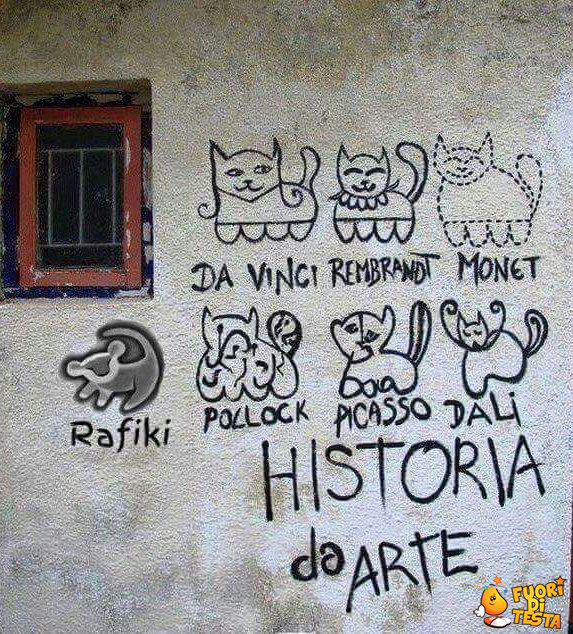 DA VINCI REMBRANDT MONET
POLLOCK PICASSO DALI
Rafiki
HISTORIA
da ARTE
FUORI
DI
TESTA